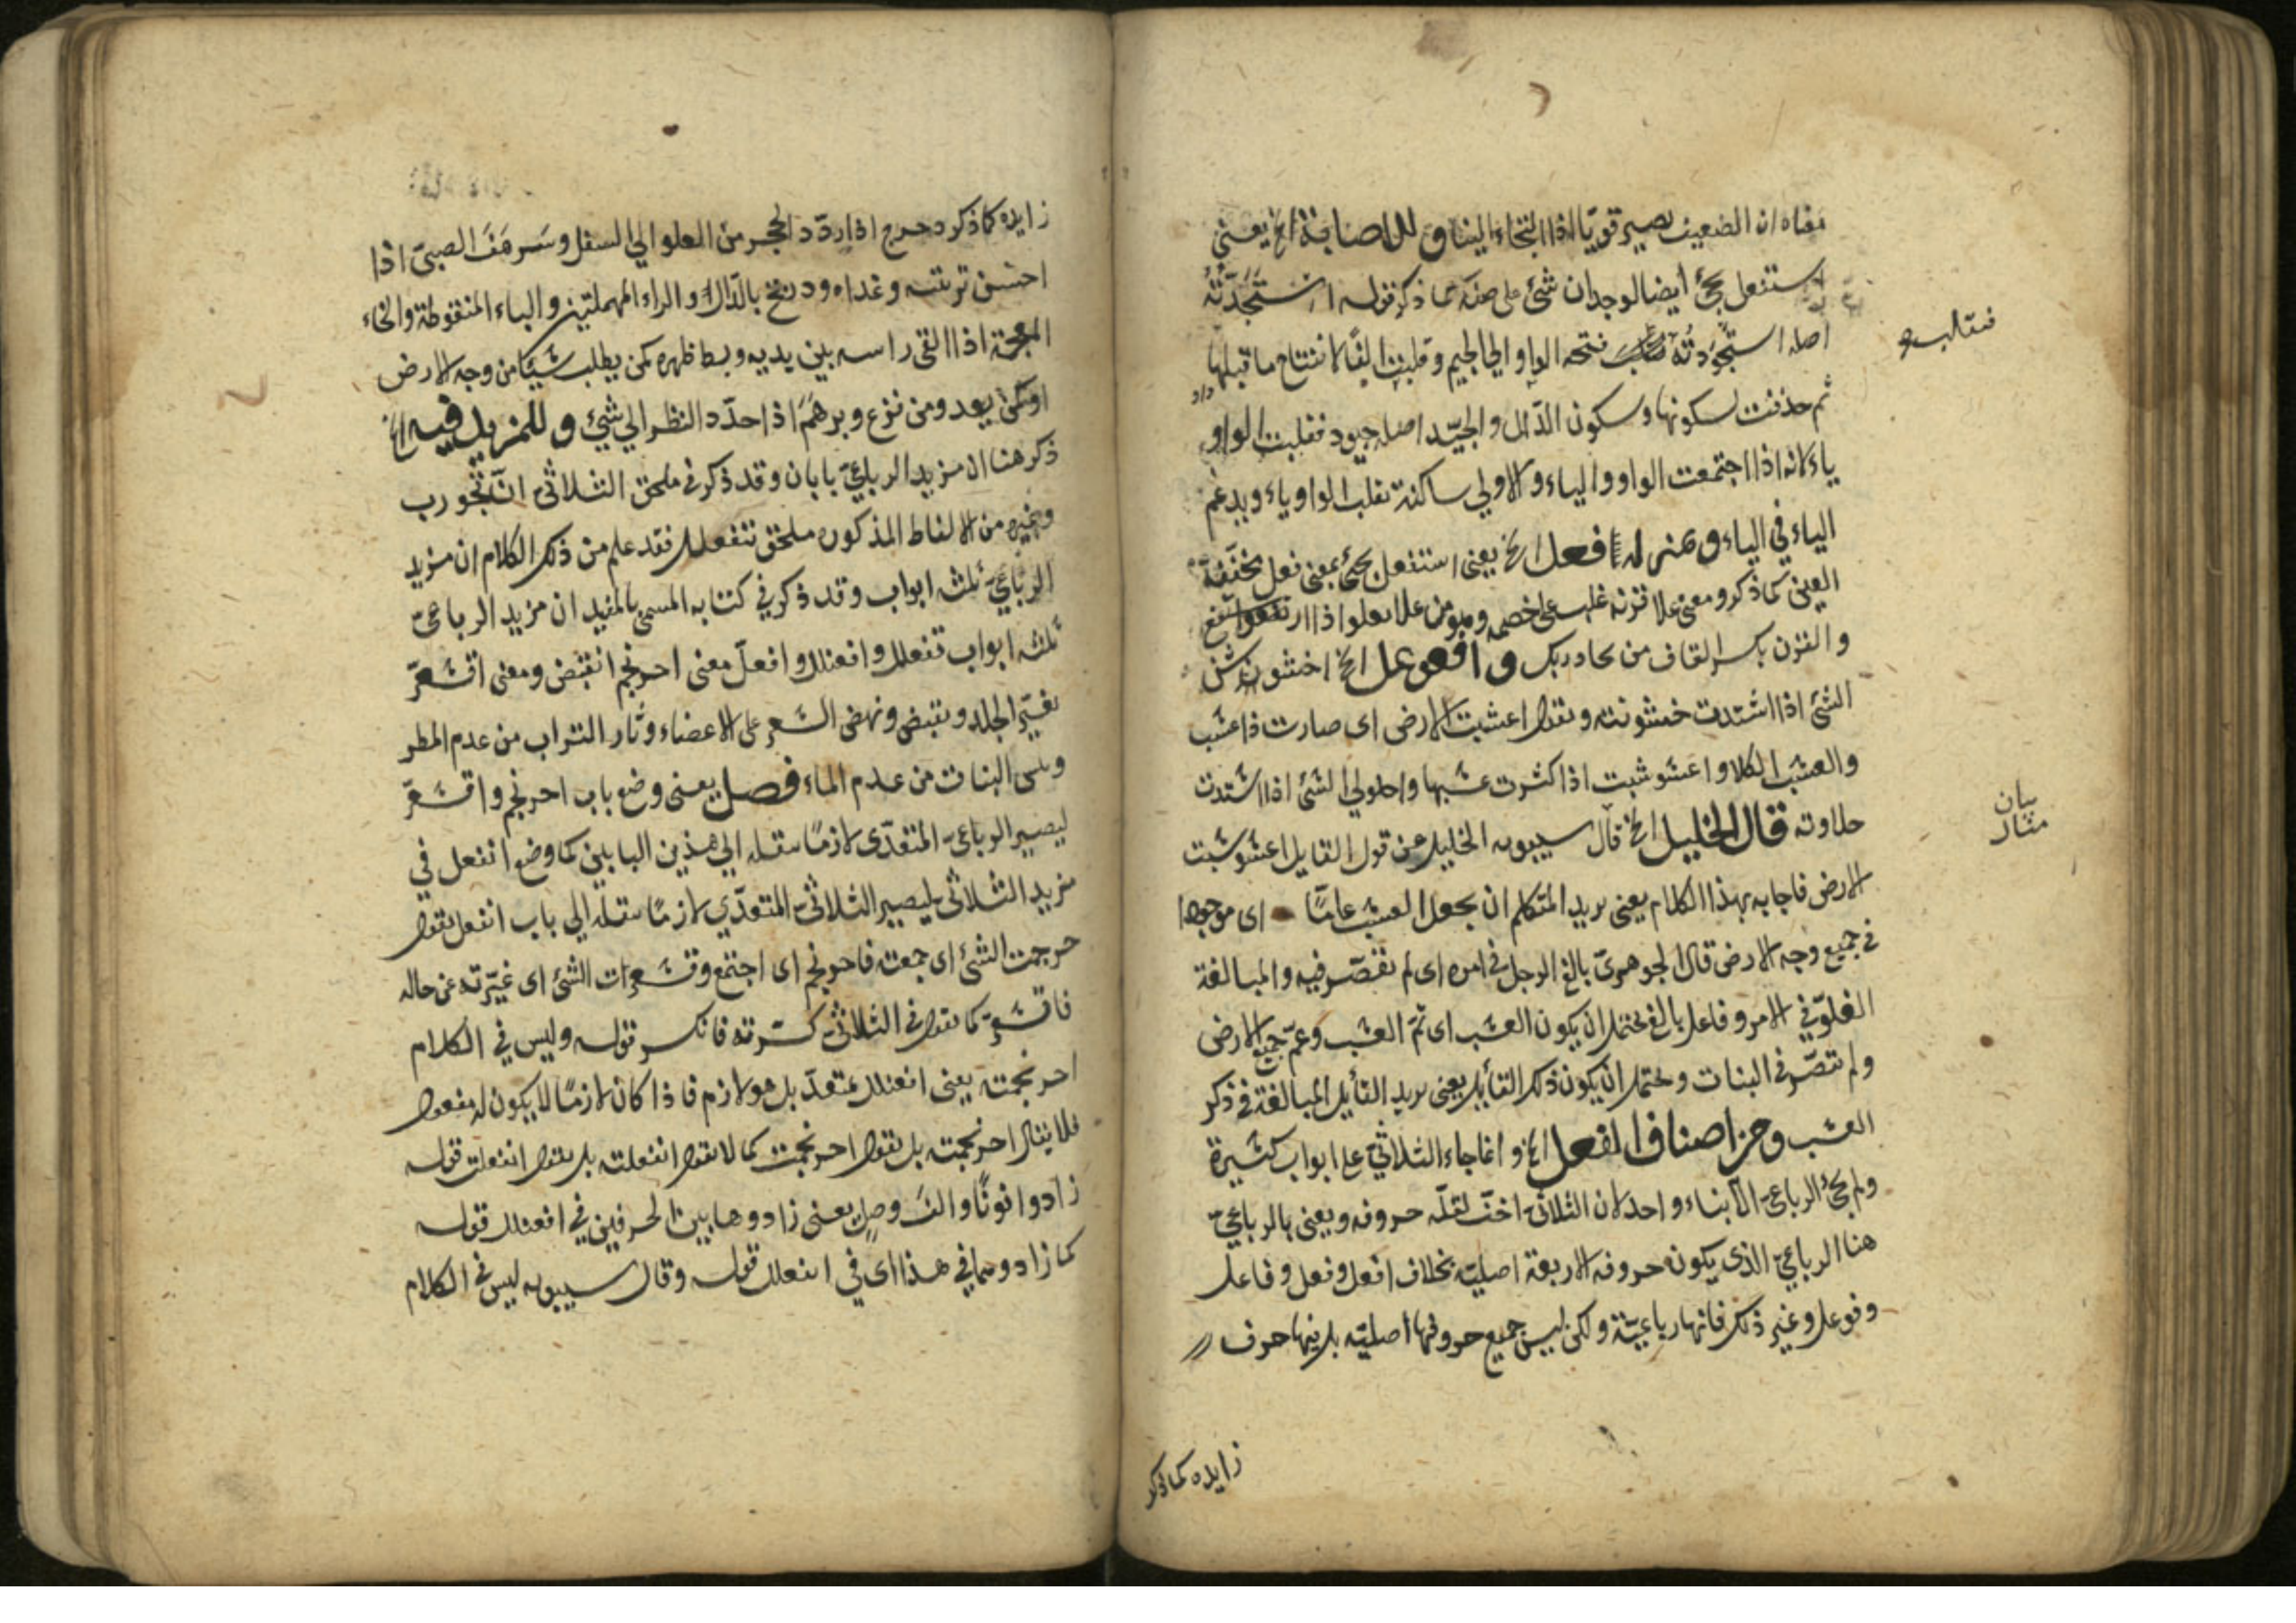 معناه ان الضعيف يصير قويّا اذا التجاء الينا وللاصابة الخ يعني
استفعل يجئ ايضا لوجدان شئ على صفة كما ذكر قوله استَجَدْتُهُ
اصله استجْوَدتُه فتحه الواو الي الجيم وقلبت الفًا لانفتاح ما قبلها
ثم حذفت لسكونها وسكون الدّال والجيّد اصله جيود فقلبت الواو
ياء لانه اذا اجتمعت الواو والياء والاولي ساكنة تقلب الواو ياء ويدغم
الياء في الياء وبمنزلة فعل الخ يعني استفعل يجئ بمعني فعل مخفّفة
العين كما ذكر ومعني علا قرنه غلب على خصمه وهو من علا يعلو اذا ارتفع
والقرن بكسر القاف من يحاربك وافعوعل الخ اخشوشن
الشئ اذا اشتدت خشونته وتقول اعشبت الارض اى صارت ذا عشب
والعشب الكلا واعشوشبت اذا كثرت عشبها واحلولي الشئ اذا اشتدت
حلاوته قال الخليل الخ قال سيبويه الخليل عن قول القايل اعشوشبت
الارض فاجابه بهذا الكلام يعني يريد المتكلم ان يجعل العشب عامّا اى موجودا
في جميع وجه الارض قال الجوهرىّ بالغ الرجل في امره اى لم يقصّر فيه والمبالغة
الغلوّ في الامر وفاعل بالغ يحتمل ان يكون العشب اى تمّ العشب وعمّ جميع الارض
ولم تقصّر في النبات ويحتمل ان يكون ذلك القايل يعني يريد القايل المبالغة في ذكر
العشب ومن اصناف الفعل الخ وانما جاء الثلاثيّ على ابواب كثيرة
ولم يجئ الرباعيّ الا بناء واحد لان الثلاثيّ اخفّ لقلّة حروفه ويعني بالرباعيّ
هنا الرباعيّ الذى يكون حروفه الاربعة اصليّة بخلاف افعل وفعل وفاعل
وفوعل وغير ذلك فانها رباعيّة ولكن ليس جميع حروفها اصليّة بل فيها حرف
زايده كما ذكر
بيان
زايده كما ذكر دحرج اذا ردّد الحجر من العلو الي السفل وسَرهَفَ الصبىّ اذا
احسن تربيته وغداه ودربخ بالدّال والراء المهملتين والباء المنقوطة والخاء
المعجمة اذا القى راسه بين يديه وبسط ظهره كمن يطلب شيئا من وجه الارض
او كمن يعدو من نزع وبرهَمَ اذا حدّد النظر الي شئ وللمزيد فيه الخ
ذكر هنا ان مزيد الرباعيّ بابان وقد ذكر في ملحق الثلاثيّ انّ تجورب
وغيره من الالفاظ المذكورة ملحق بتفعلل فقد علم من ذلك الكلام ان مزيد
الرباعيّ ثلثه ابواب وقد ذكر في كتابه المسمى بالمفيد ان مزيد الرباعىّ
ثلثه ابواب تفعلل وافعنلل وافعللّ معنى احرنجم انقبض ومعنى اقشعرّ
تغيّر الجلد وتقبض ونهض الشعر على الاعضاء وثار التراب من عدم المطر
ويبس النبات من عدم الماء فصل يعني وضع باب احرنجم واقشعرّ
ليصير الرباعىّ المتعدّى لازمًا بنقله الي هذين البابين كما وضع انفعل في
مزيد الثلاثى ليصير الثلاثىّ المتعدّي لازمًا بنقله الي باب انفعل تقول
حرجمت الشئ اى جمعته فاحرنجم اى اجتمع وقشعرت الشئ اى غيّرته عن حاله
فاقشعرّ كما تقول في الثلاثىّ كسّرته فانكسر قوله وليس في الكلام
احرنجمته يعني افعنلل متعدّ بل هو لازم فاذا كان لازمًا لا يكون له مفعول
فلا يقال احرنجمته بل تقول احرنجمت كما لا تقول انفعلته بل تقول انفعلت قوله
زادوا نونًا والفَ وصلٍ يعني زادوهما بين الحرفين في افعنلل قوله
كما زادوهما في هذا اى في انفعل قوله وقال سيبويه ليس في الكلام